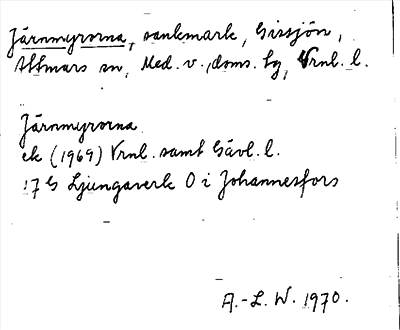 Järnmyrorna, sankmark, Gissjön,
Attmars sn, Med. v., doms. tg, Vrnl. l.
Järnmyrorna
ek (1969) Vrnl. samt Gävl. l.
17 G Ljungaverk O i Johannesfors
A.-L. W. 1970.